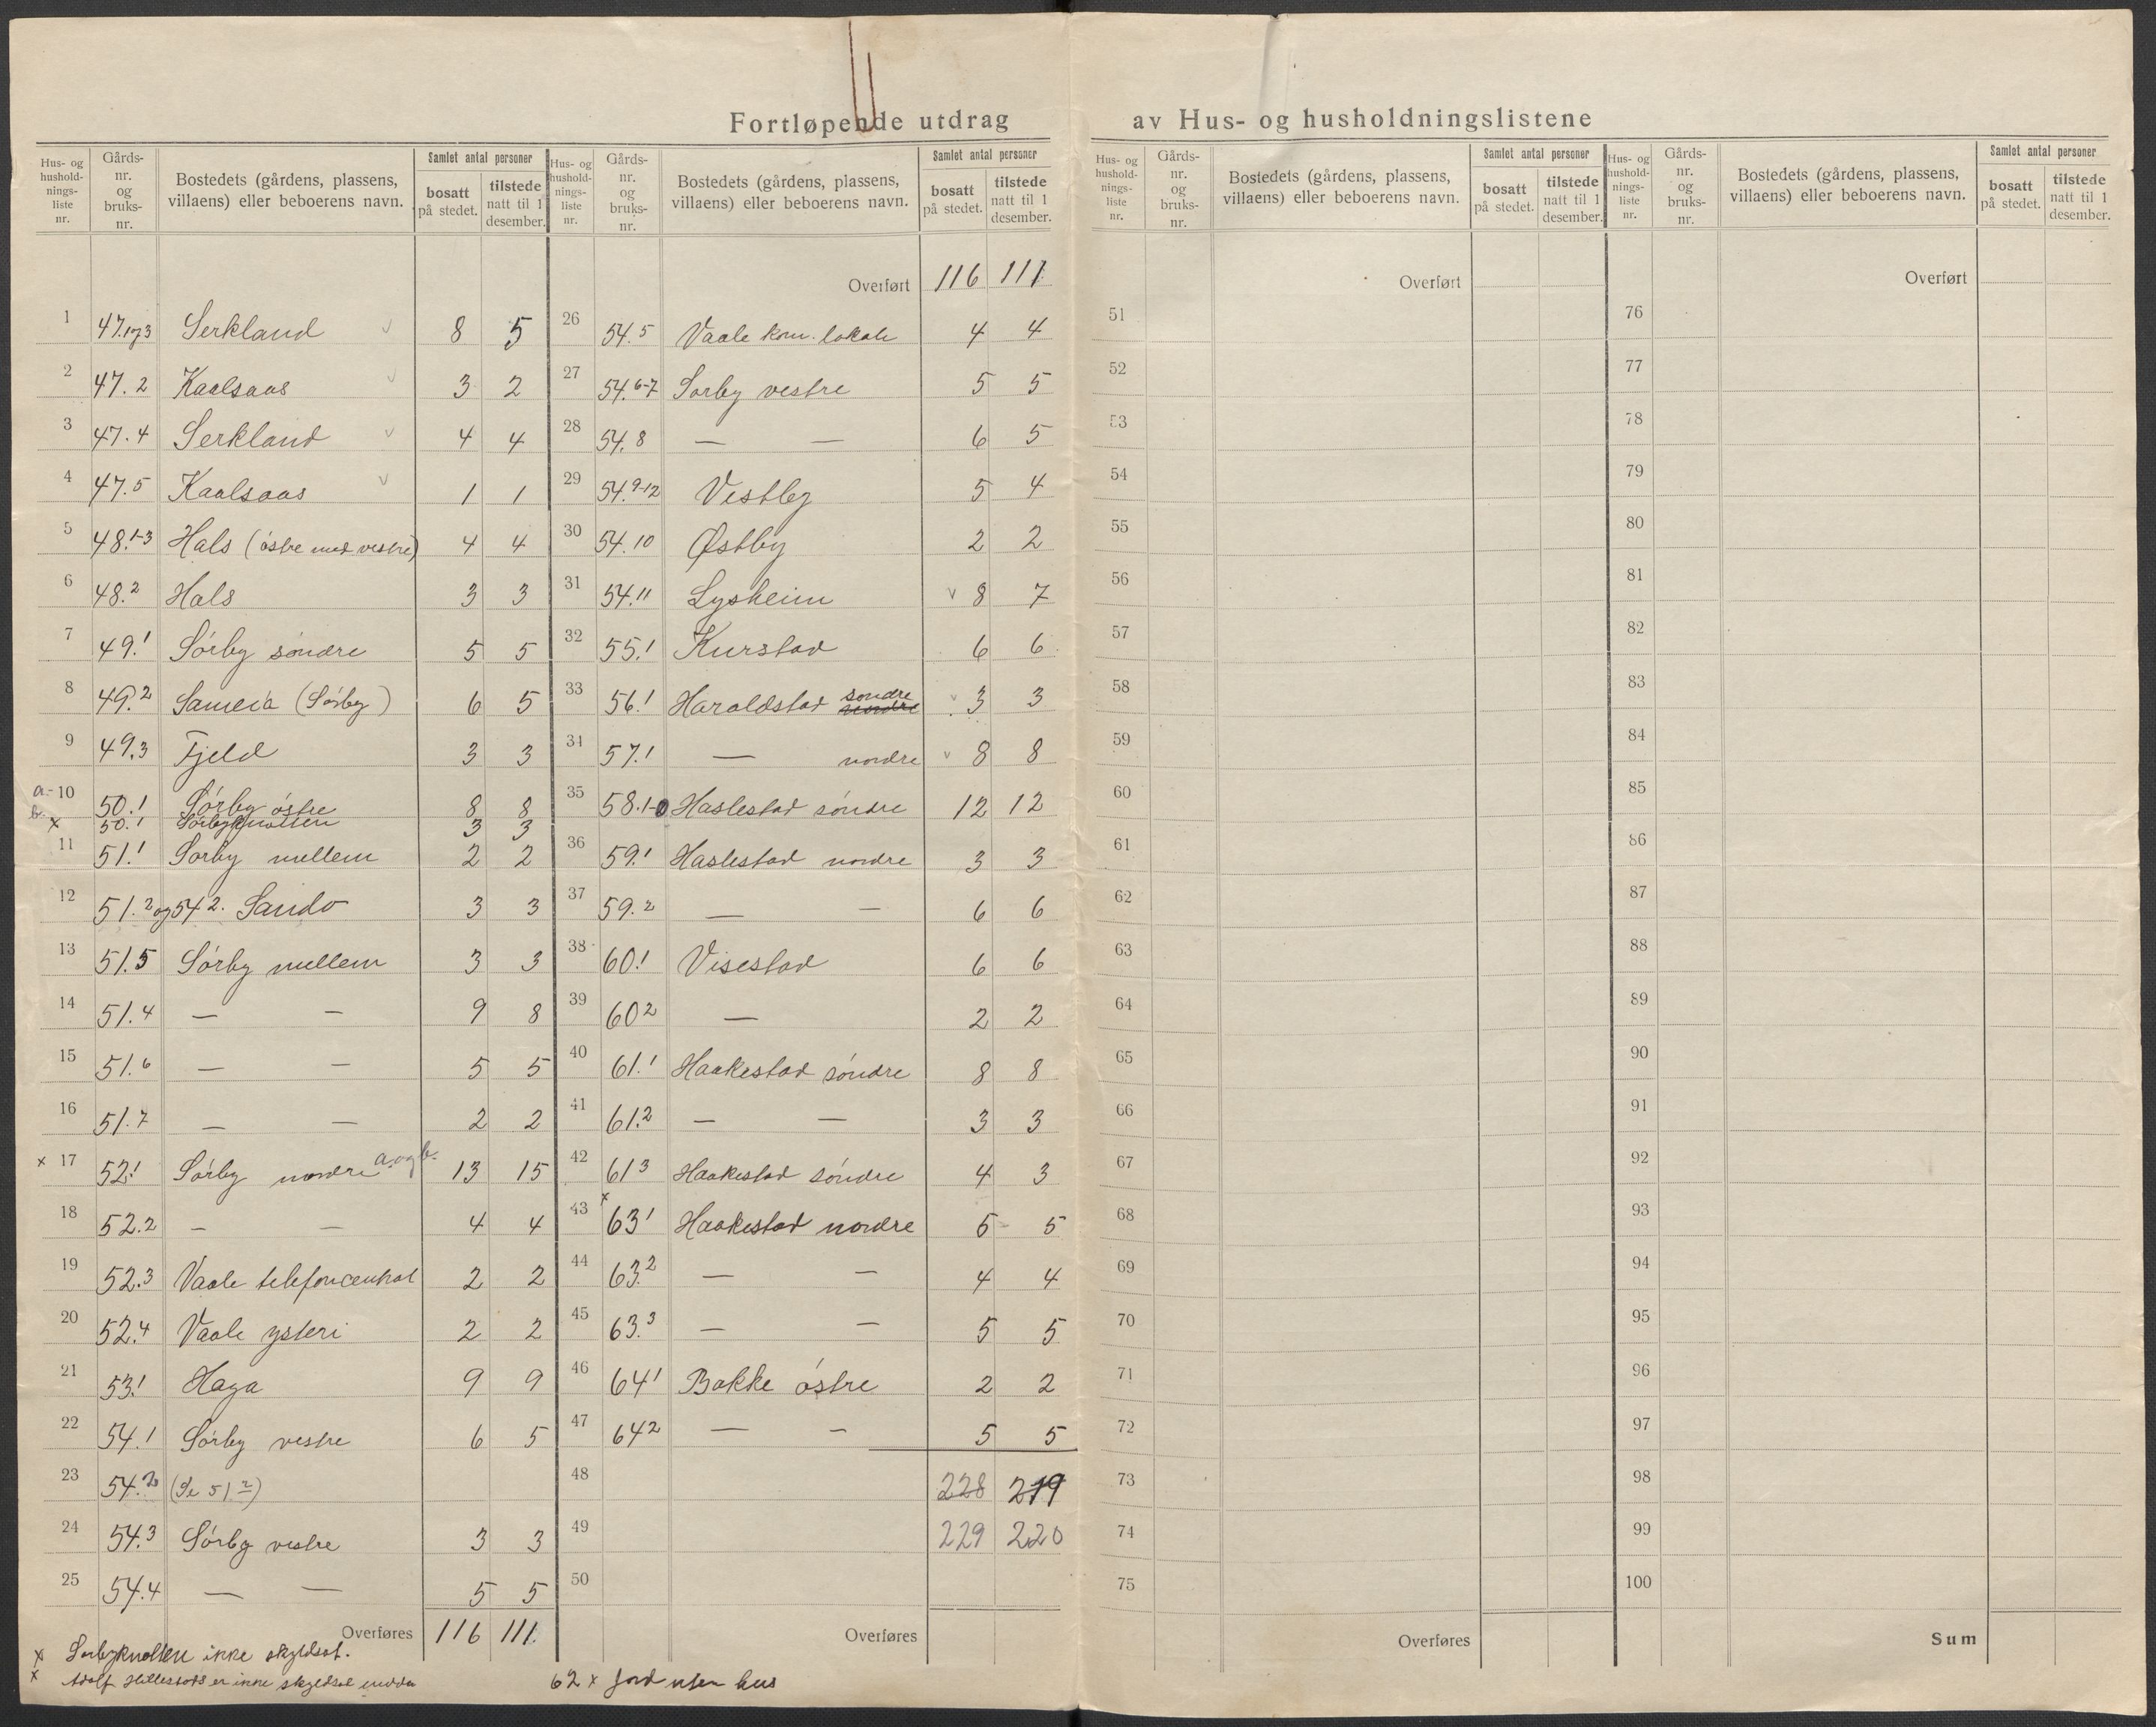 Fortløpende utdrag av Hus- og husholdningslistene
Hus- og husholdnings- liste nr. | Gårds- nr. og bruks- nr. | Bostedets (gårdens, plassens, villaens) eller beboerens navn. | Samlet antal personer | bosatt på stedet. | tilstede natt til 1 desember.
1 47.1og3 Serkland 8 5
2 47.2 Kaalsaas 3 2
3 47.4 Serkland 4 4
4 47.5 Kaalsaas 1 1
5 48.1-3 Hals (østre med vestre) 4 4
6 48.2 Hals 3 3
7 49.1 Sørby søndre 5 5
8 49.2 (Sørby) 6 5
9 49.3 Fjeld 3 3
a. 10 50.1 Sørby østre 8 8
b. x 50.1 Sørbyknatten 3 3
11 51.1 Sørby mellem 2 2
12 51.2 og 54 2. Sando 3 3
13 51.5 Sørby mellem 3 3
14 51.4 — — 9 8
15 51.6 — — 5 5
16 51.7 — — 2 2
x 17 52.1 Sørby nordre a. og b. 13 15
18 52.2 — — 4 4
19 52.3 Vaale telefoncentral 2 2
20 52.4 Vaale ysteri 2 2
21 53.1 Haga 9 9
22 54.1 Sørby vestre 6 5
23 54.2 (Se 51.2)
24 54.3 Sørby vestre 3 3
25 54.4 — — 5 5
Overføres 116 111
x Sørbyknatten ikke skyldsat.
x Adolf Hillestads er ikke skyldsat
Hus- og husholdnings- liste nr. | Gårds- nr. og bruks- nr. | Bostedets (gårdens, plassens, villaens) eller beboerens navn. | Samlet antal personer | bosatt på stedet. | tilstede natt til 1 desember.
Overført 116 111
26 54.5 Vaale kom. lokale 4 4
27 54.6-7 Sørby vestre 5 5
28 54.8 — — 6 5
29 54.9-12 Vestby 5 4
30 54.10 Østby 2 2
31 54.11 Lysheim 8 7
32 55.1 Kurstad 6 6
33 56.1 Haraldstad søndre 3 3
34 57.1 — nordre 8 8
35 58.1- Haslestad søndre 12 12
36 59.1 Haslestad nordre 3 3
37 59.2 — — 6 6
38 60.1 Visestad 6 6
39 60 2 — 2 2
40 61.1 Haakestad søndre 8 8
41 61.2 — — 3 3
42 61 3 Haakestad søndre 4 3
43 x 63 1 Haakestad nordre 5 5
44 63.2 — — 4 4
45 63.3 — — 5 5
46 64 1 Bakke østre 2 2
47 64 2 — — 5 5
48 228 219
49 229 220
50
Overføres
62 x Jord uten hus
Hus- og husholdnings- liste nr. | Gårds- nr. og bruks- nr. | Bostedets (gårdens, plassens, villaens) eller beboerens navn. | Samlet antal personer | bosatt på stedet. | tilstede natt til 1 desember.
Overført
51
52
53
54
55
56
57
58
59
60
61
62
63
64
65
66
67
68
69
70
71
72
73
74
75
Overføres
Hus- og husholdnings- liste nr. | Gårds- nr. og bruks- nr. | Bostedets (gårdens, plassens, villaens) eller beboerens navn. | Samlet antal personer | bosatt på stedet. | tilstede natt til 1 desember.
Overført
76
77
78
79
80
81
82
83
84
85
86
87
88
89
90
91
92
93
94
95
96
97
98
99
100
Sum